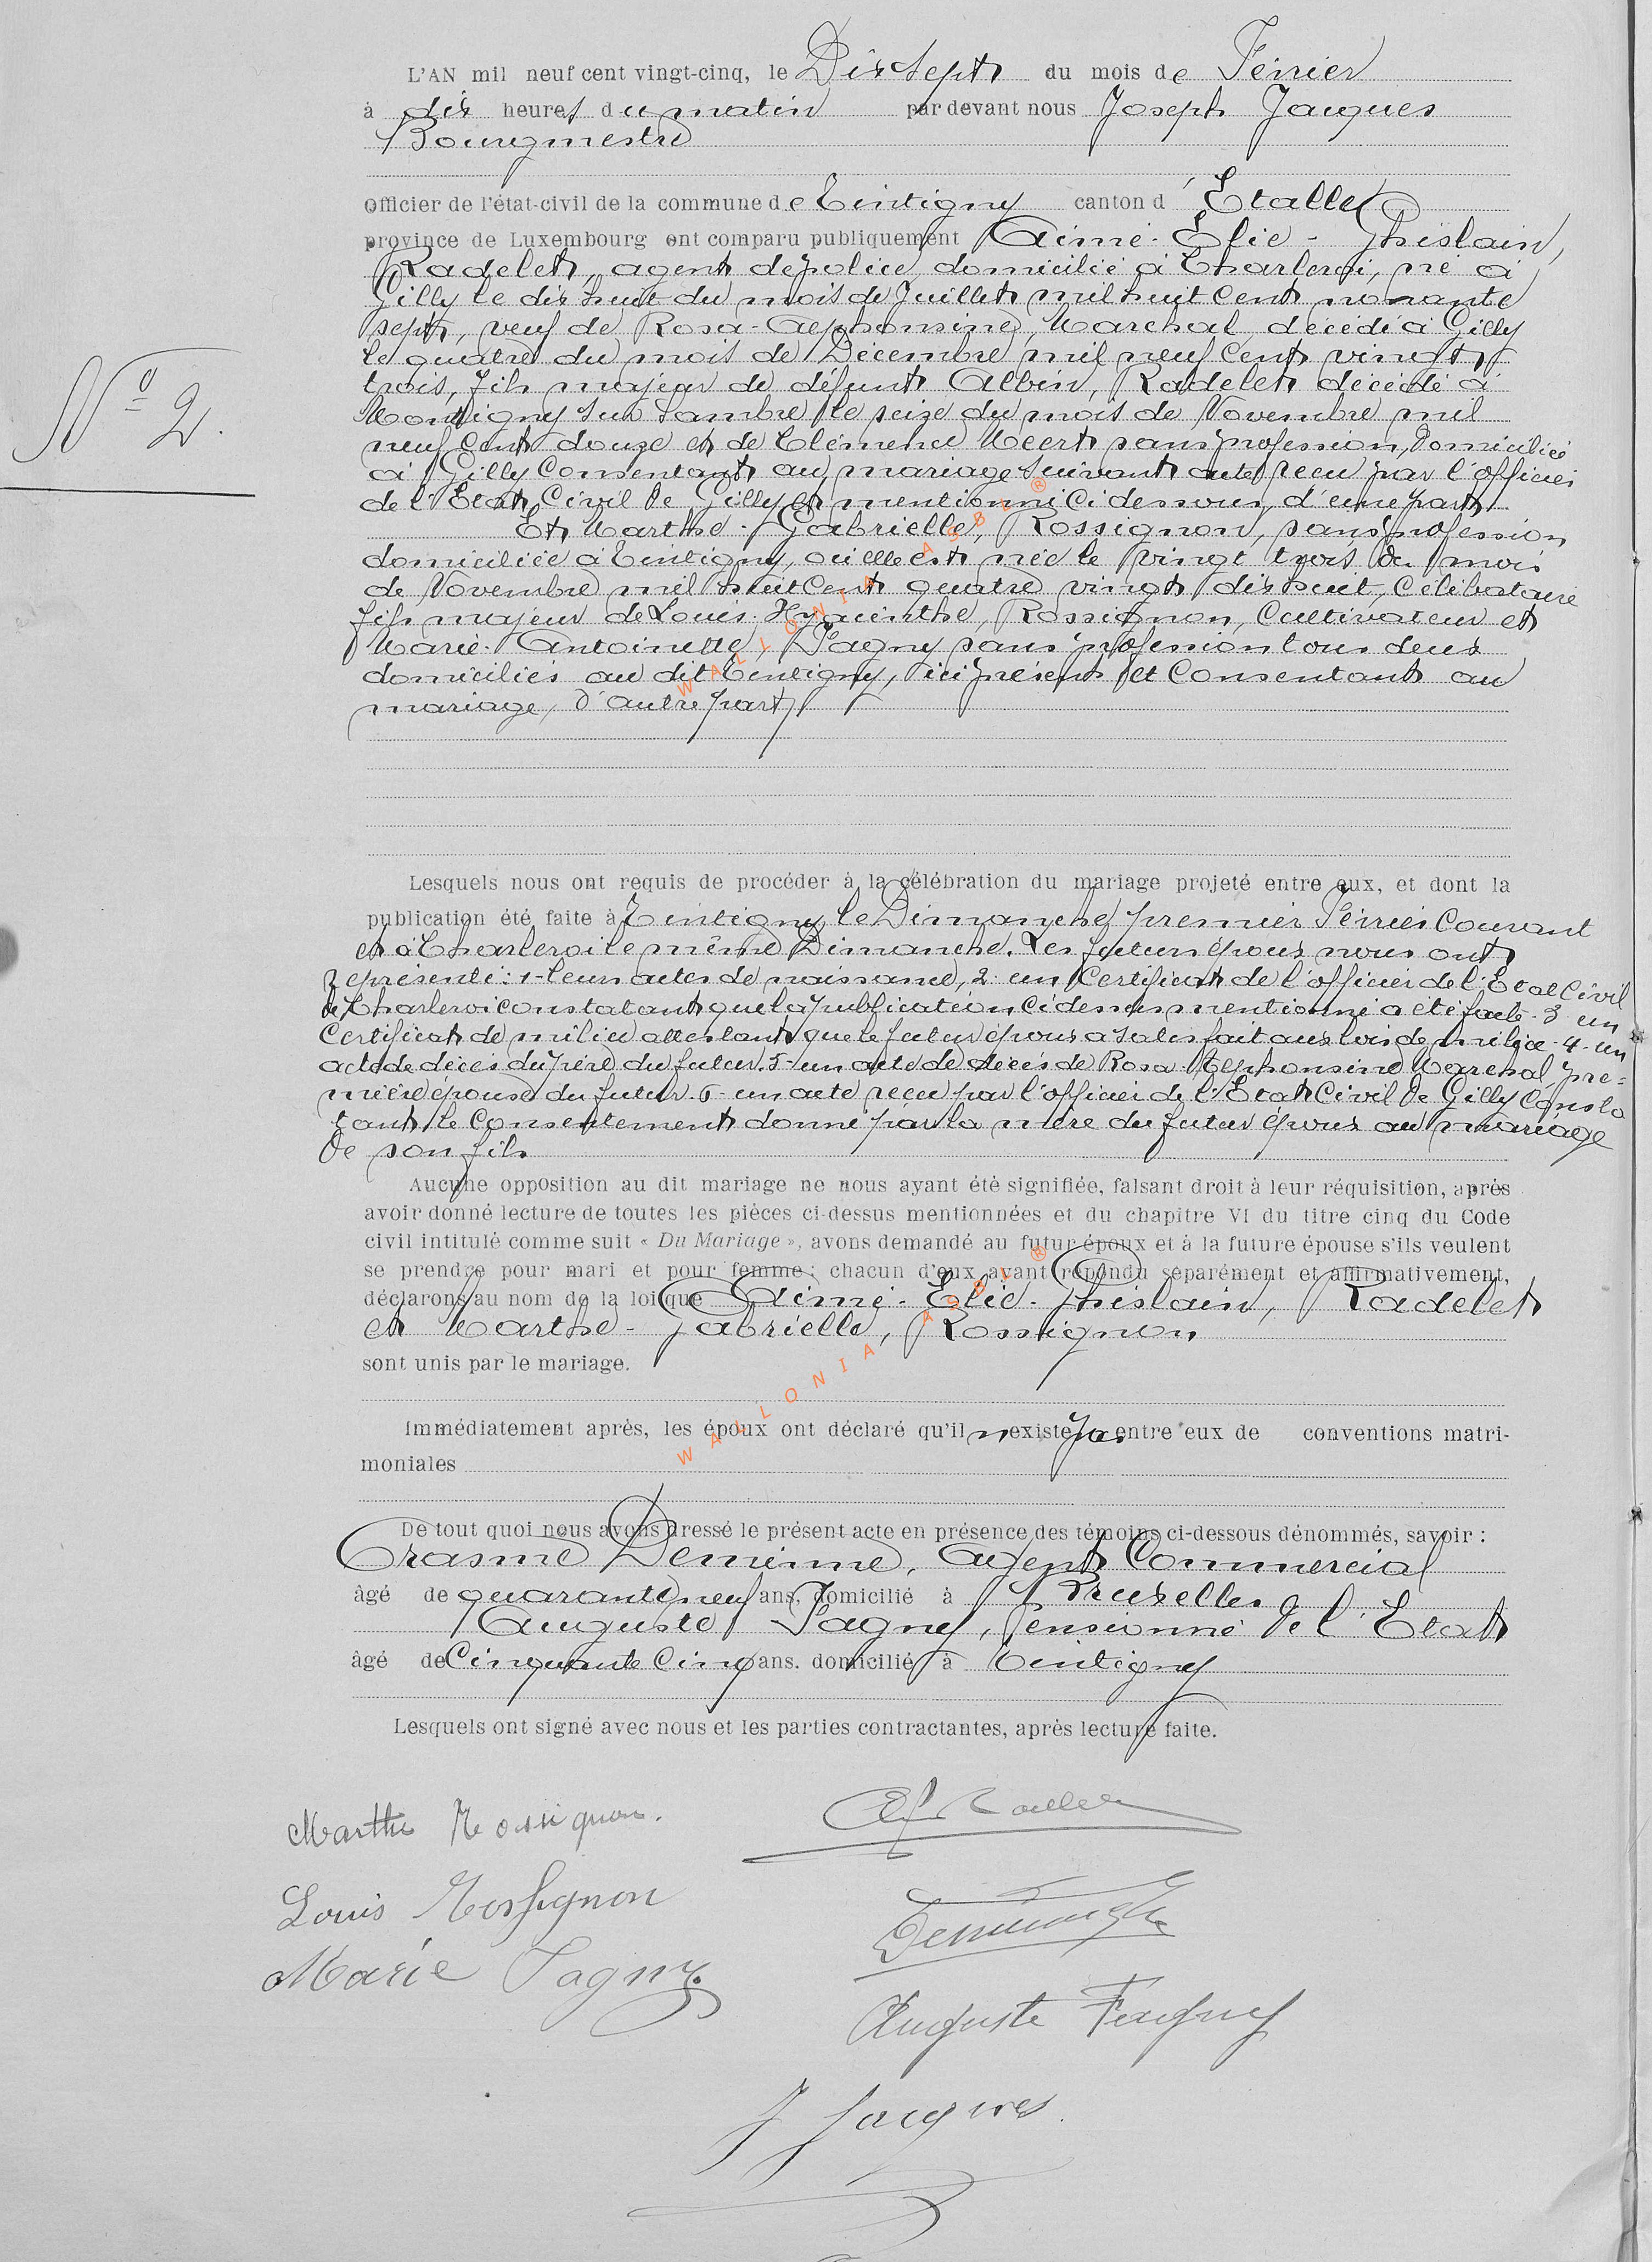 L'AN mil neuf cent vingt-cinq, le Dix Sept du mois de Février
à dix heures du matin par devant nous Joseph Jacques
Bourgmestre
officier de l'état-civil de la commune de Tintigny canton d'Etalle
province de Luxembourg ont comparu publiquement Aimé-Elie-Ghislain,
Radelet, agent de police, domicilié à Charleroi, né à
Gilly le dix huit du mois de Juillet mil huit cent nonante
sept, veuf de Rosa-Alphonsine, Marchal décédé à Gilly
le quatre du mois de Décembre mil neuf cent vingt
trois, fils majeur de défunt Albin, Radelet décédé à
Montigny sur Sambre le seize du mois de Novembre mil
neuf cent douze et de Clémence Meert sans profession, domiciliée
N° 2.
à Gilly consentant au mariage suivant acte recu par l'officier
de l'Etat Civil de Gilly et mentionné ci dessous, d'une part
Et Marthe-Gabrielle, Rossignon, sans profession
domiciliée à Tintigny, où elle est née le vingt trois du mois
de Novembre mil huit cent quatre vingt dix huit, célibataire
fils majeur de Louis-Hyacinthe, Rossignon, cultivateur et
Marie-Antoinette, Fagny sans profession tous deux
domiciliés au dit Tintigny, ici présents et consentant au
mariage, d'autre part
Lesquels nous ont requis de procéder à la célébration du mariage projeté entre eux, et dont la
publication été faite à Tintigny le Dimanche premier Février courant
et à Charleroi le même Dimanche. Les futurs époux nous ont
représenté: 1- leurs actes de naissance, 2- un Certificat de l'officier de l'Etat Civil
de Charleroi constatant que la publication ci dessus mentionné a été faite - 3 un
Certificat de milice attestant que le futur époux a satisfait aux lois de milice - 4- un
acte de décès du père du futur. 5- un acte de décès de Rosa Alphonsine Marchal pre=
mière épouse du futur. 6- un acte recu par l'officier de l'Etat Civil de Gilly consta
tant le consentement donné par la mère du futur époux au mariage
de son fils
Aucune opposition au dit mariage ne nous ayant été signifiée, faisant droit à leur réquisition, après
avoir donné lecture de toutes les pièces ci-dessus mentionnées et du chapitre VI du titre cinq du Code
civil intitulé comme suit « Du Mariage », avons demandé au futur époux et à la future épouse s'ils veulent
se prendre pour mari et pour femme ; chacun d'eux ayant répondu séparément et affirmativement,
déclarons au nom de la loi que Aimé-Elie-Ghislain, Radelet
et Marthe-Gabrielle, Rossignon
sont unis par le mariage.
Immédiatement après, les époux ont déclaré qu'il n'existe pas entre eux de conventions matri-
moniales
De tout quoi nous avons dressé le présent acte en présence des témoins ci-dessous dénommés, savoir :
Erasme agent commercial
âgé de quarante neuf ans, domicilié à Bruxelles
Auguste Fagny, Pensionné de l'Etat
âgé de Cinquante Cinq ans. domicilié à Tintigny
Lesquels ont signé avec nous et les parties contractantes, après lecture faite.
Marthe Rossignon.
Louis Rossignon
Marie Fagny
Auguste Fagny
J Jacques
WALLONIA ASBL ®
WALLONIA ASBL ®